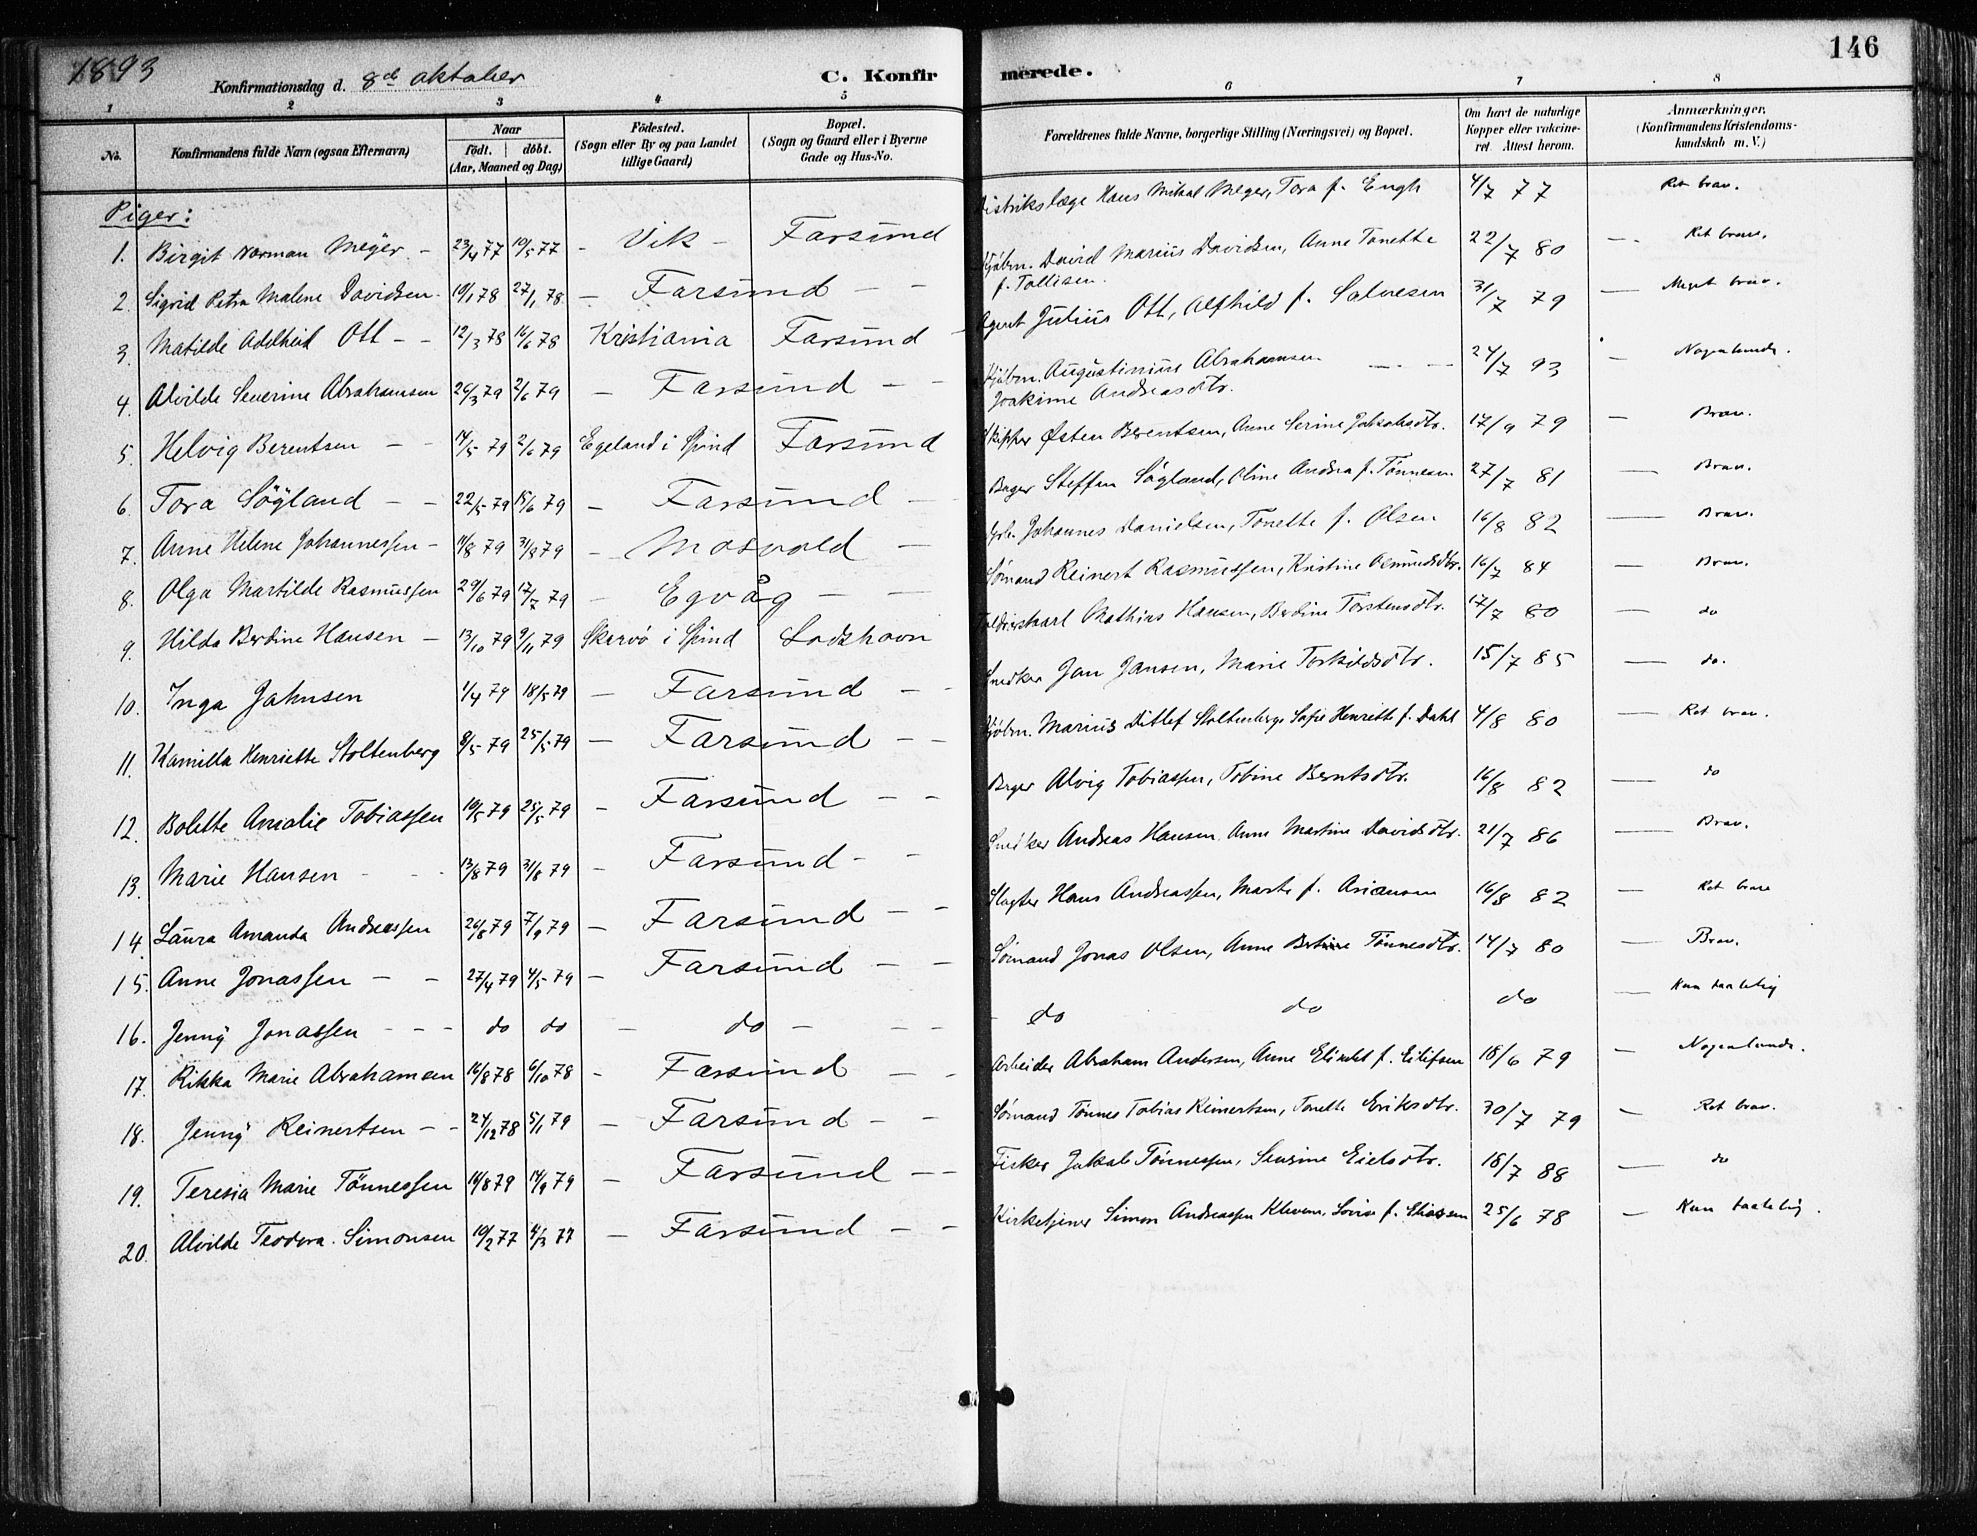 1893
146
Konfirmationsdag d. 8de oktober
C. Konfirmerede.
1 2 3 4 5 6 7 8
No. Konfirmandens fulde Navn (ogsaa Efternavn) Naar født. døbt. (Aar, Maaned og Dag) Fødested. (Sogn eller By og paa Landet tillige Gaard) Bopæl. (Sogn og Gaard eller i Byerne Gade og Hus-No. Forældrenes fulde Navne, borgerlige Stilling (Næringsvei) og Bopæl. Om havt de naturlige Kopper eller vakcineret. Attest herom. Anmærkninger. (Konfirmandens Kristendomskundskab m. V.)
Piger:
1. Birgit Norman Meyer - 23/4 77 10/5 77 - Vik - Farsund Distriktslæge Hans Mikal Meyer, Tora f. Engh 4/7 77 Ret brav.
2. Sigrid Petra Malene Davidsen 10/1 78 27/1 78 - Farsund - - Kjøbm. David Marius Davidsen, Anne Tonette f. Tollisen. 22/7 80 - Ret brav.
3. Matilde Adelheid Ott - - 12/3 78 16/6 78 Kristiania Farsund - Agent Julius Ott, Alfhild f. Salvesen 31/7 79 - Meget brav.
4. Alvilde Severine Abrahamsen 26/3 79 2/6 79 - Farsund - - Kjøbm. Augustinius Abrahamsen Joakime Andreasdtr. 24/7 93 - Nogenlunde.
5. Helvig Berentsen - - 14/5 79 2/6 79 Egeland i Spind Farsund Skipper Østen Berentsen, Anne Serine Jakobsdtr. 17/9 79 - Brav.
6. Tora Søgland - - 22/5 79 15/6 79 - Farsund - Bager Steffen Søgland, Oline Andrea f. Tønnesen 27/7 81 - Brav.
7. Anne Helene Johannessen - 11/8 79 31/8 79 - Mosvold - Johannes Danielsen, Tonette f. Olsen 16/8 82 - Brav.
8. Olga Martilde Rasmussen 29/6 79 17/7 79 - Egvåg - - Sømand Reinert Rasmussen, Kristine Osmundsdtr. 16/7 84 - Brav.
9. Hilda Berdine Hansen - 13/10 79 9/11 79 Skarvø i Spind Lodshavn Mathias Hansen, Berdine Torstensdtr. 17/7 80 - do
10. Inga Jahnsen 1/4 79 18/5 79 - Farsund - - Snedker Jan Jansen, Marie Torkildsdtr. 15/7 85 - do.
11. Kamilla Henriette Stoltenberg 8/5 79 25/5 79 - Farsund - - Kjøbm. Marius Ditlef Stoltenberg, Sofie Henriette f. Dahl 4/8 80 - Ret brav.
12. Bolette Amalie Tobiassen 10/5 79 25/5 79 - Farsund - - Bager Alvig Tobiassen, Tobine Berntsdtr. 16/8 82 - do
13. Marie Hansen - - 13/8 79 31/8 79 - Farsund - - Snedker Andreas Hansen, Anne Martine Davidsdtr. 21/7 86 - Brav.
14. Laura Amanda Andreassen 26/8 79 7/9 79 - Farsund - - Slagter Hans Andreassen, Marte f. Ariansen 16/8 82 - Ret brav
15. Anne Jonassen - - 27/4 79 4/5 79 - Farsund - - Sømand Jonas Olsen, Anne Bertine Tønnesdtr. 14/7 80 - Brav.
16. Jenny Jonassen - - - do do - do - - - do do do - Kun taalelig
17. Rikka Marie Abrahamsen 16/8 78 6/10 78 - Farsund - - Arbeider Abraham Andersen, Anne Elisabet f. Eilefsen 18/6 79 - Nogenlunde.
18. Jenny Reinertsen - - 24/12 78 5/1 79 - Farsund - - Sømand Tønnes Tobias Reinertsen, Tonette Eriksdtr. 30/7 79 - Ret brav.
19. Teresia Marie Tønnessen 14/8 79 14/9 79 - Farsund - - Fisker Jakob Tønnessen, Severine Eielsdtr. 18/7 88 - do
20. Alvilde Teodora Simonsen 10/2 77 4/3 77 - Farsund - - Kirketjener Simon Andreassen Kleven, Lovise f. 25/6 78 - Kun taalelig.